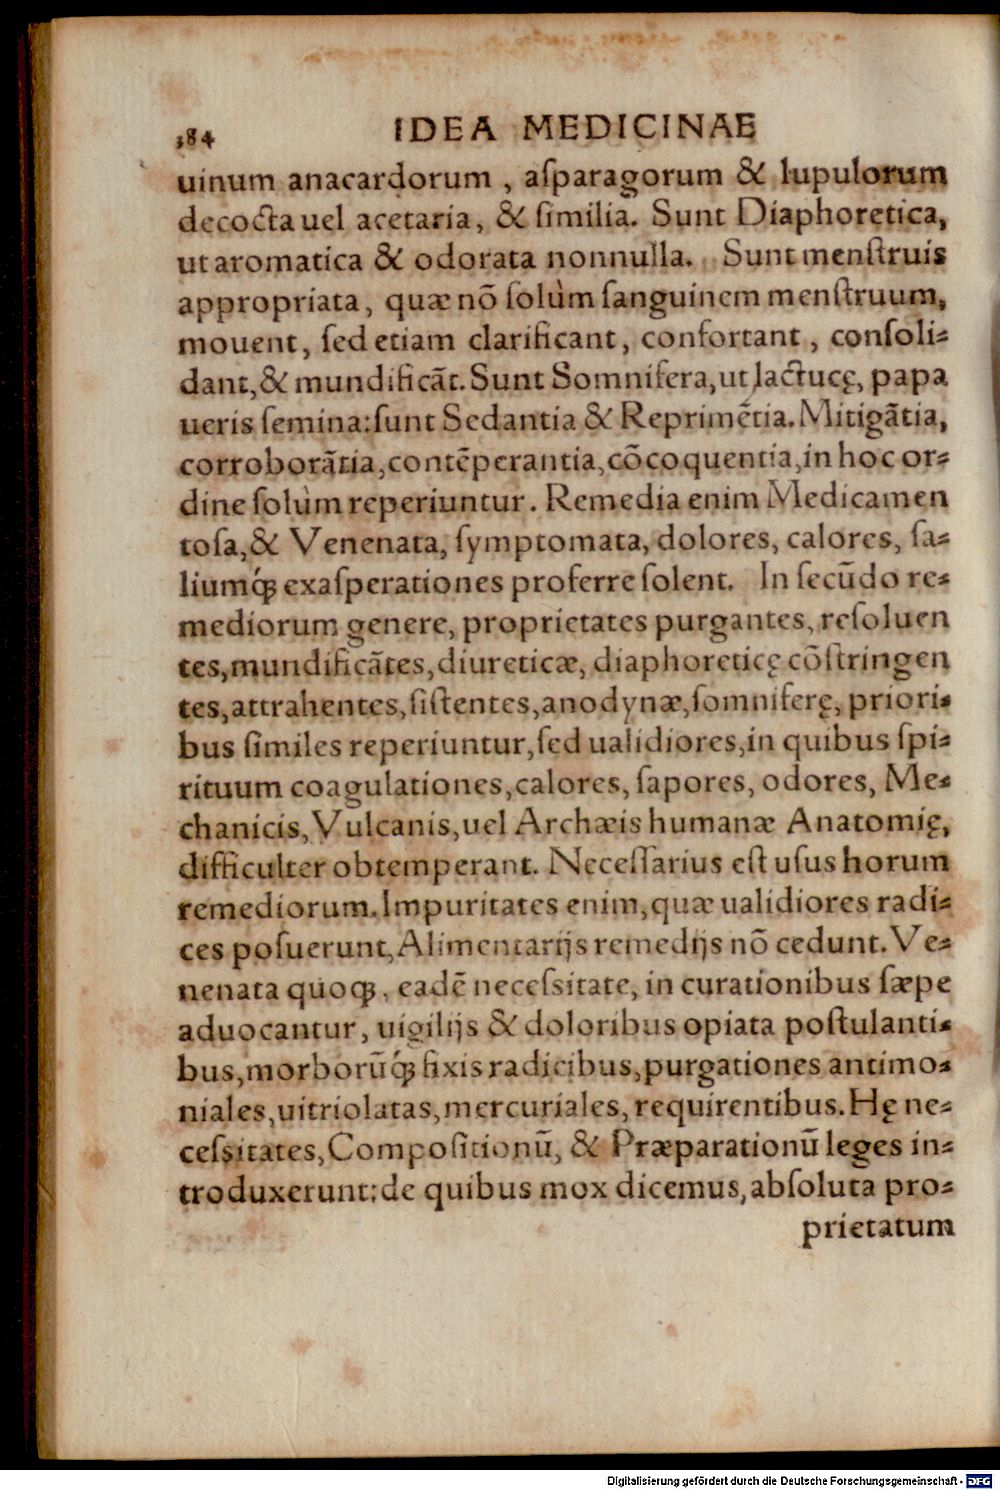 184 IDEA MEDICINAE
uinum anacardorum , aſparagorum & lupulorum
decocta uel acetaria, & ſimilia. Sunt Diaphoretica,
ut aromatica & odorata nonnulla. Sunt menſtruis
appropriata, quæ nõ ſolùm ſanguinem menſtruum,
mouent, ſed etiam clarificant, confortant, conſoli⸗
dant, & mundificãt. Sunt Somnifera, ut lactucę, papa
ueris ſemina: ſunt Sedantia & Reprimẽtia. Mitigãtia,
corroborãtia, contẽperantia, cõcoquentia, in hoc or⸗
dine ſolùm reperiuntur. Remedia enim Medicamen
toſa, & Venenata, ſymptomata, dolores, calores, ſa⸗
liumq́; exaſperationes proferre ſolent. In ſecũdo re⸗
mediorum genere, proprietates purgantes, reſoluen
tes, mundificãtes, diureticæ, diaphoreticę cõſtringen
tes, attrahentes, ſiſtentes, anodynæ, ſomniferę, priori⸗
bus ſimiles reperiuntur, ſed ualidiores, in quibus ſpi⸗
rituum coagulationes, calores, ſapores, odores, Me⸗
chanicis, Vulcanis, uel Archæis humanæ Anatomię,
difficulter obtemperant. Neceſſarius eſt uſus horum
remediorum. Impuritates enim, quæ ualidiores radi⸗
ces poſuerunt, Alimentarijs remedijs nõ cedunt. Ve⸗
nenata quoq;, eadẽ neceſsitate, in curationibus ſæpe
aduocantur, uigilijs & doloribus opiata poſtulanti⸗
bus, morborũq́; fixis radicibus, purgationes antimo⸗
niales, uitriolatas, mercuriales, requirentibus. Hę ne⸗
ceſsitates, Compoſitionũ, & Præparationũ leges in⸗
troduxerunt: de quibus mox dicemus, abſoluta pro⸗
prietatum
Digitalisierung gefördert durch die Deutsche Forschungsgemeinschaft - DFG